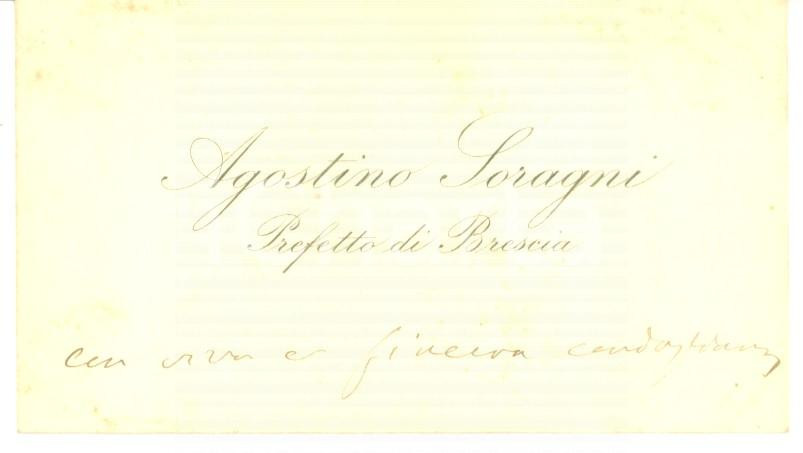 Agostino Soragni
Prefetto di Brescia
con viva e sincera condoglianza